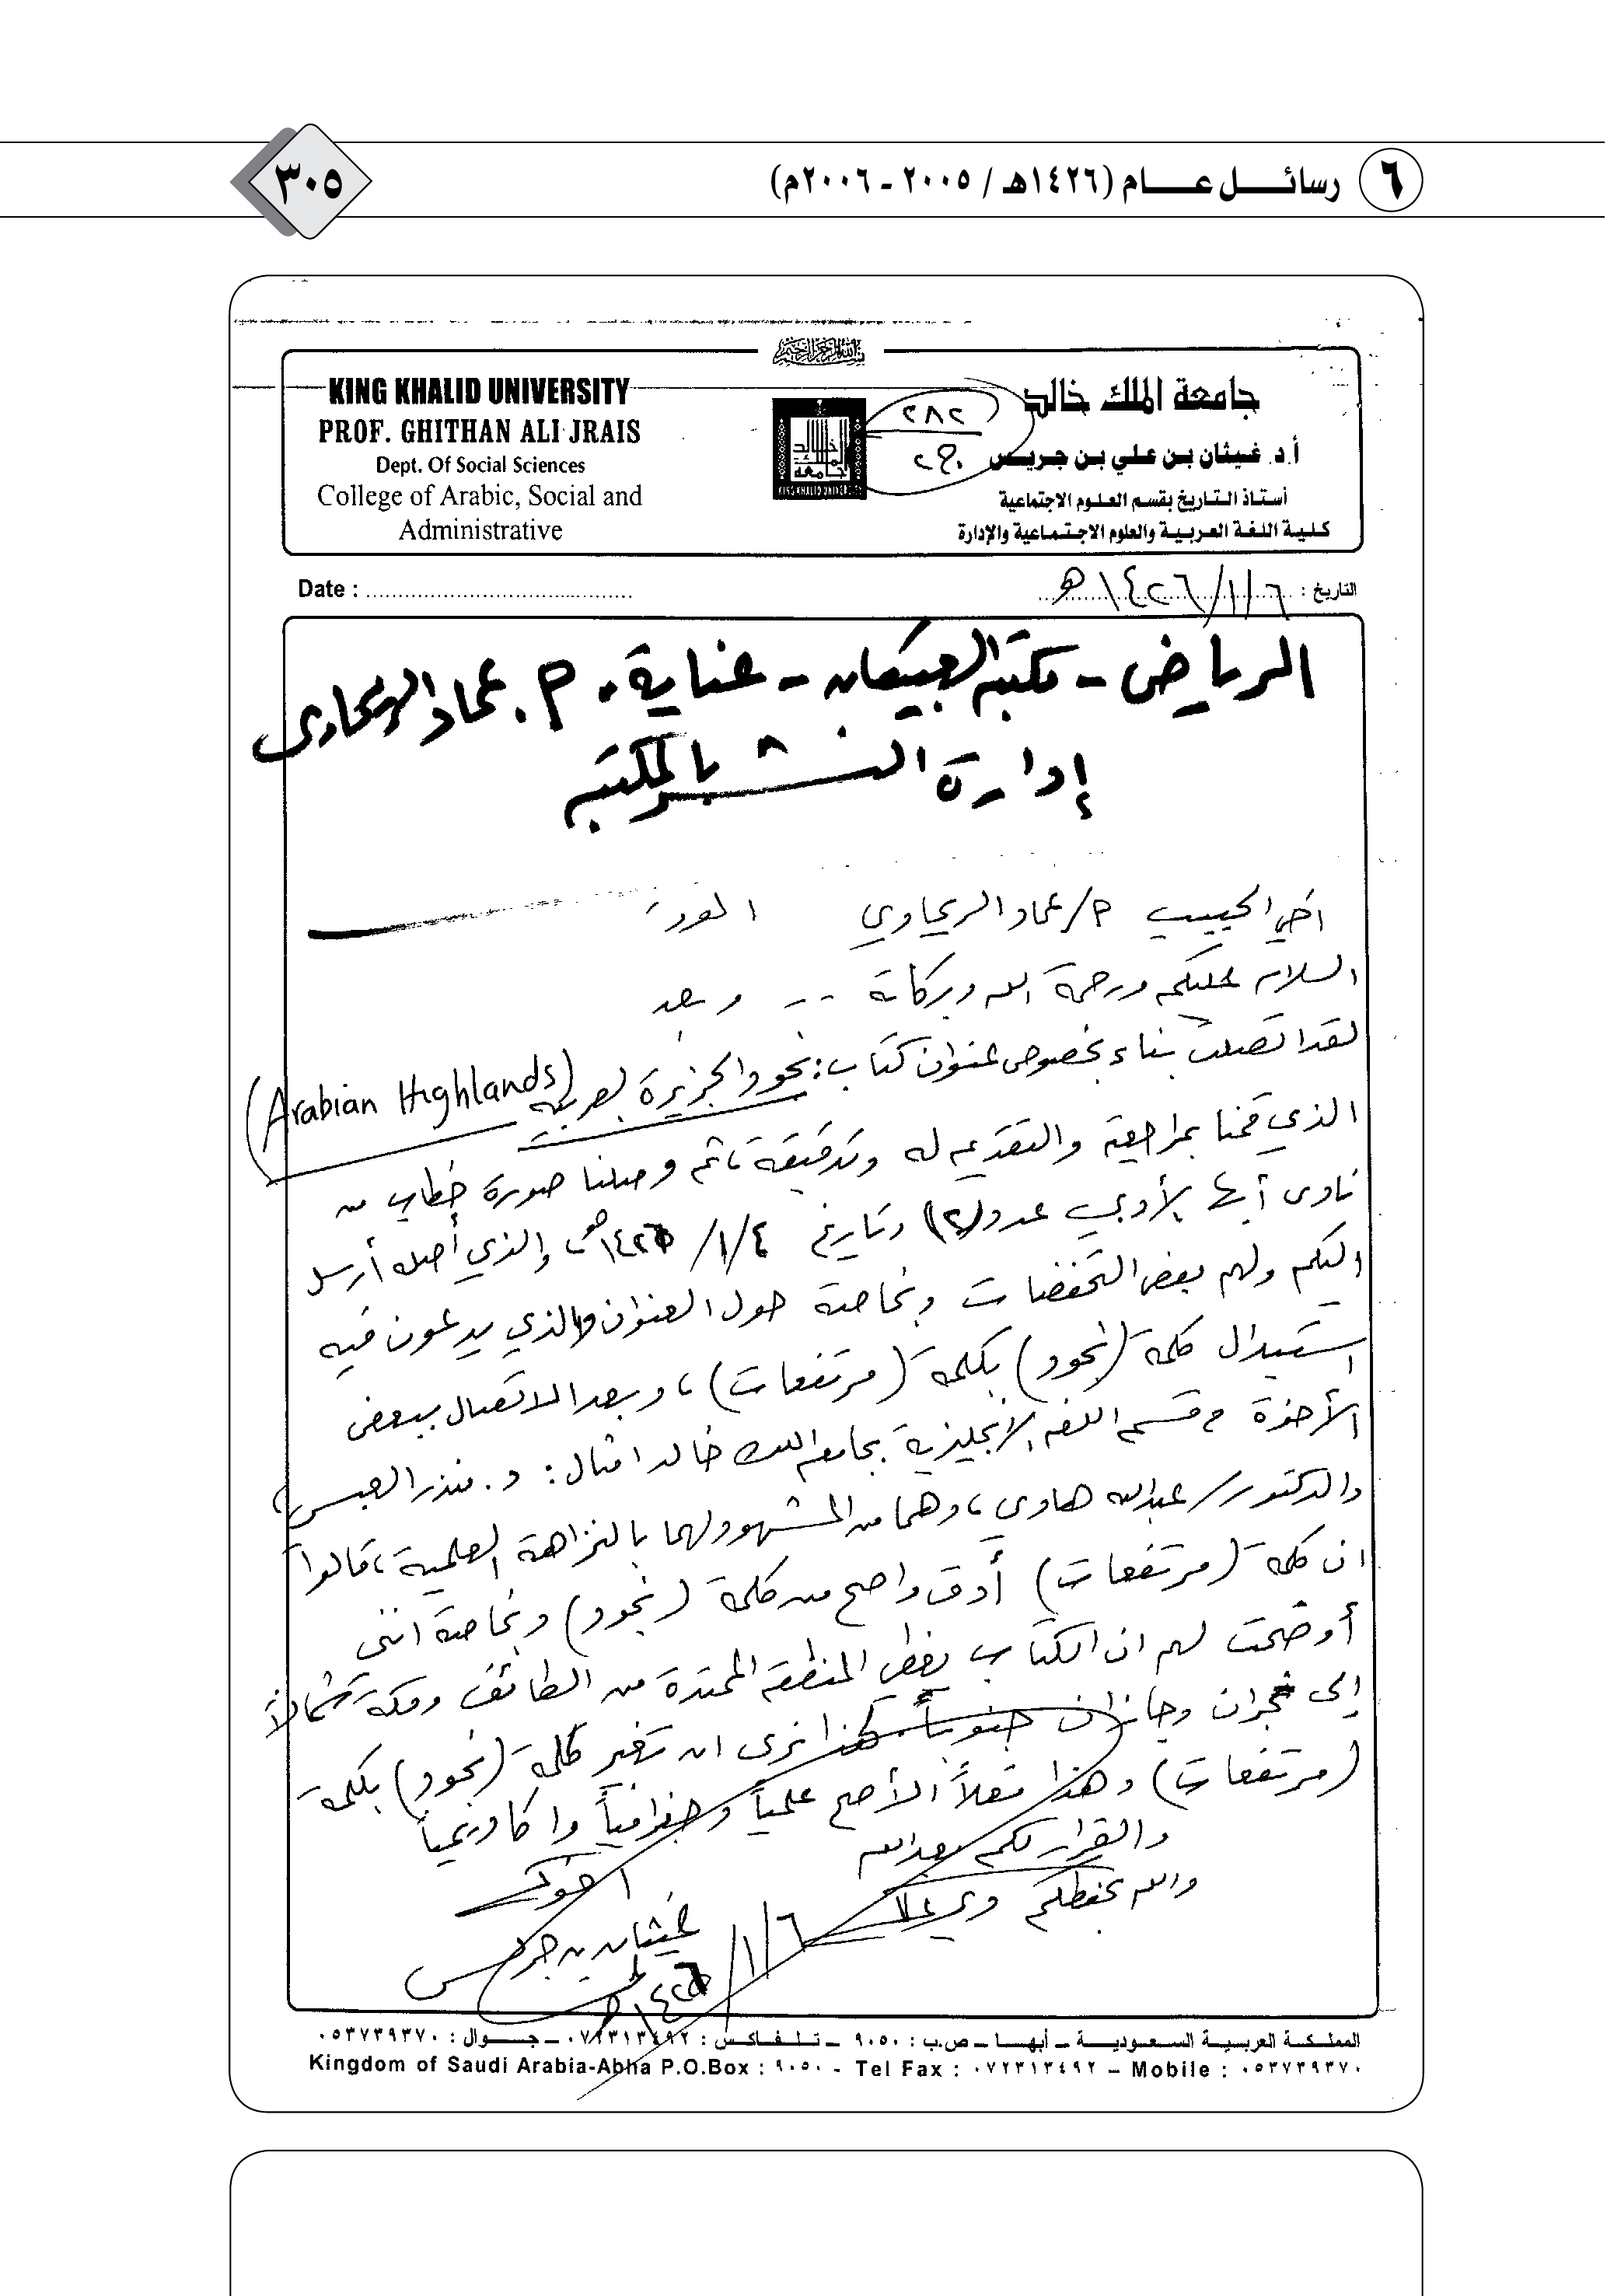 ٦ رسائل عام (١٤٢٦هـ / ٢٠٠٥ - ٢٠٠٦م)
٣٠٥
KING KHALID UNIVERSITY
PROF. GHITHAN ALI JRAIS
Dept. Of Social Sciences
College of Arabic, Social and
Administrative
جامعة الملك خالد
أ.د. غيثان بن علي بن جريس
أستاذ التاريخ بقسم العلوم الاجتماعية
كلية اللغة العربية والعلوم الاجتماعية والإدارة
٢٨٢
KING KHALID UNIVERSITY
Date :
التاريخ : ٦/١/١٤٢٦هـ
الرياض - مكتبة العبيكان - عناية . م . عماد الريحاوي
إدارة النشر بالمكتبة
اخي الحبيب م/عماد الريحاوي
السلام عليكم ورحمة الله وبركاته -- وبعد
لقد اتصلت بناء بخصوص عنوان كتاب: نجود الجزيرة العربية (Arabian Highlands)
الذي قمنا بمراجعته والتقديم له وتدقيقه، ثم وصلنا صورة خطاب من
نادي أبها الأدبي عدد (٢) وتاريخ ٤/١/١٤٢٦هـ، والذي أصله أرسل
اليكم ولهم بعض التحفضات وبخاصة حول العنوان والذي يدعون فيه
استبدال كلمة (نجود) بكلمة (مرتفعات)، وبعد الاتصال ببعض
الأخوة في قسم اللغة الإنجليزية بجامعة الملك خالد امثال: د. منذر العبسي،
والدكتور/ عبدالله هادي، وهما من المشهود لهما بالنزاهة العلمية، قالوا
ان كلمة (مرتفعات) أدق واصح من كلمة (نجود) وبخاصة انني
أوضحت لهم ان الكتاب يغطي المنطقة الممتدة من الطائف ومكة شمالاً
إلى نجران وجازان جنوباً. لهذا نرى ان تغير كلمة (نجود) بكلمة
(مرتفعات) وهذا فعلاً الأصح علمياً وجغرافياً واكاديمياً
والقرار لكم بعد الله
والله يحفظكم ويرعاكم
اخوكم
غيثان بن جريس
٦/١/١٤٢٦هـ
المملكة العربية السعودية – أبها – ص.ب : ٩٠٥٠ – تلفاكس : ٠٧٢٣١٣٤٩٢ – جوال : ٠٥٣٧٣٩٣٧٠
Kingdom of Saudi Arabia-Abha P.O.Box : ٩٠٥٠ - Tel Fax : ٠٧٢٣١٣٤٩٢ – Mobile : ٠٥٣٧٣٩٣٧٠